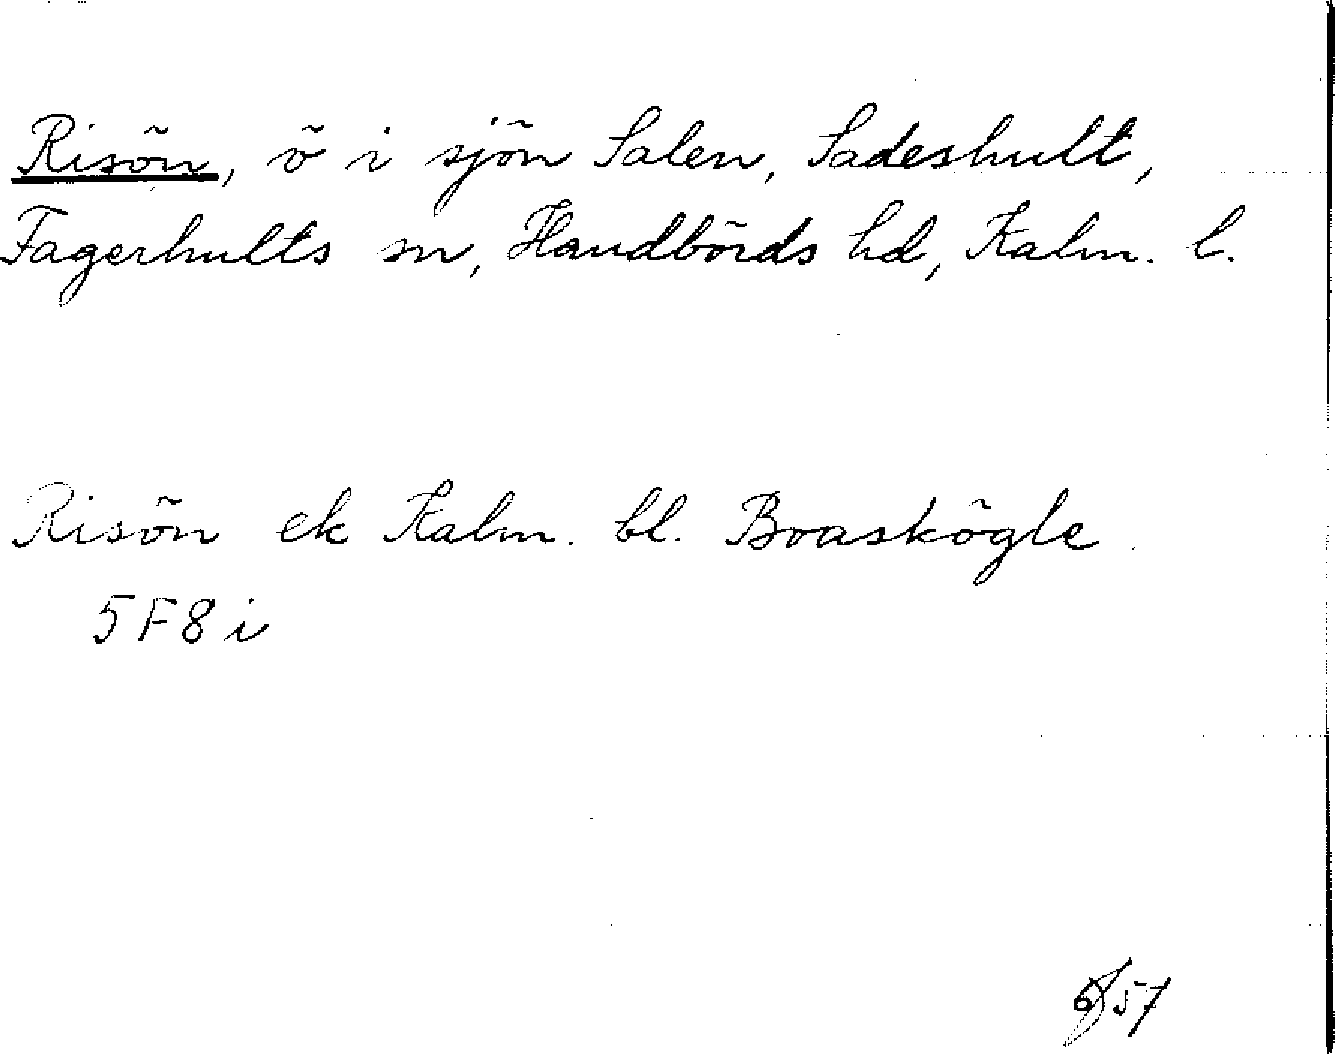 Risön, ö i sjön Salen, Sadeshult,
Fagerhults sn, Handbörds hd, Kalm. l.
Risön ek Kalm. bl. Boaskögle.
5F8i
57